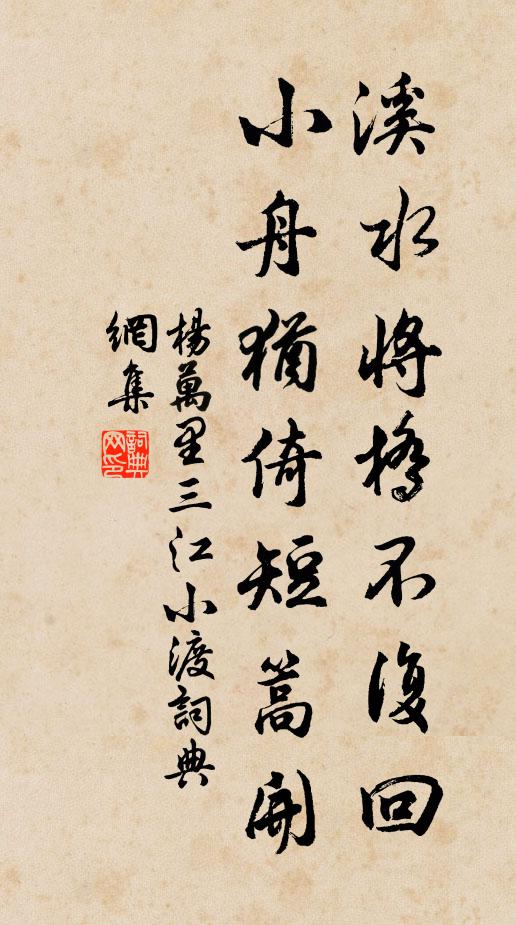 溪水將橋不復回
小舟猶倚短篙開
楊萬里三江小渡詞典
網集
詞典网印